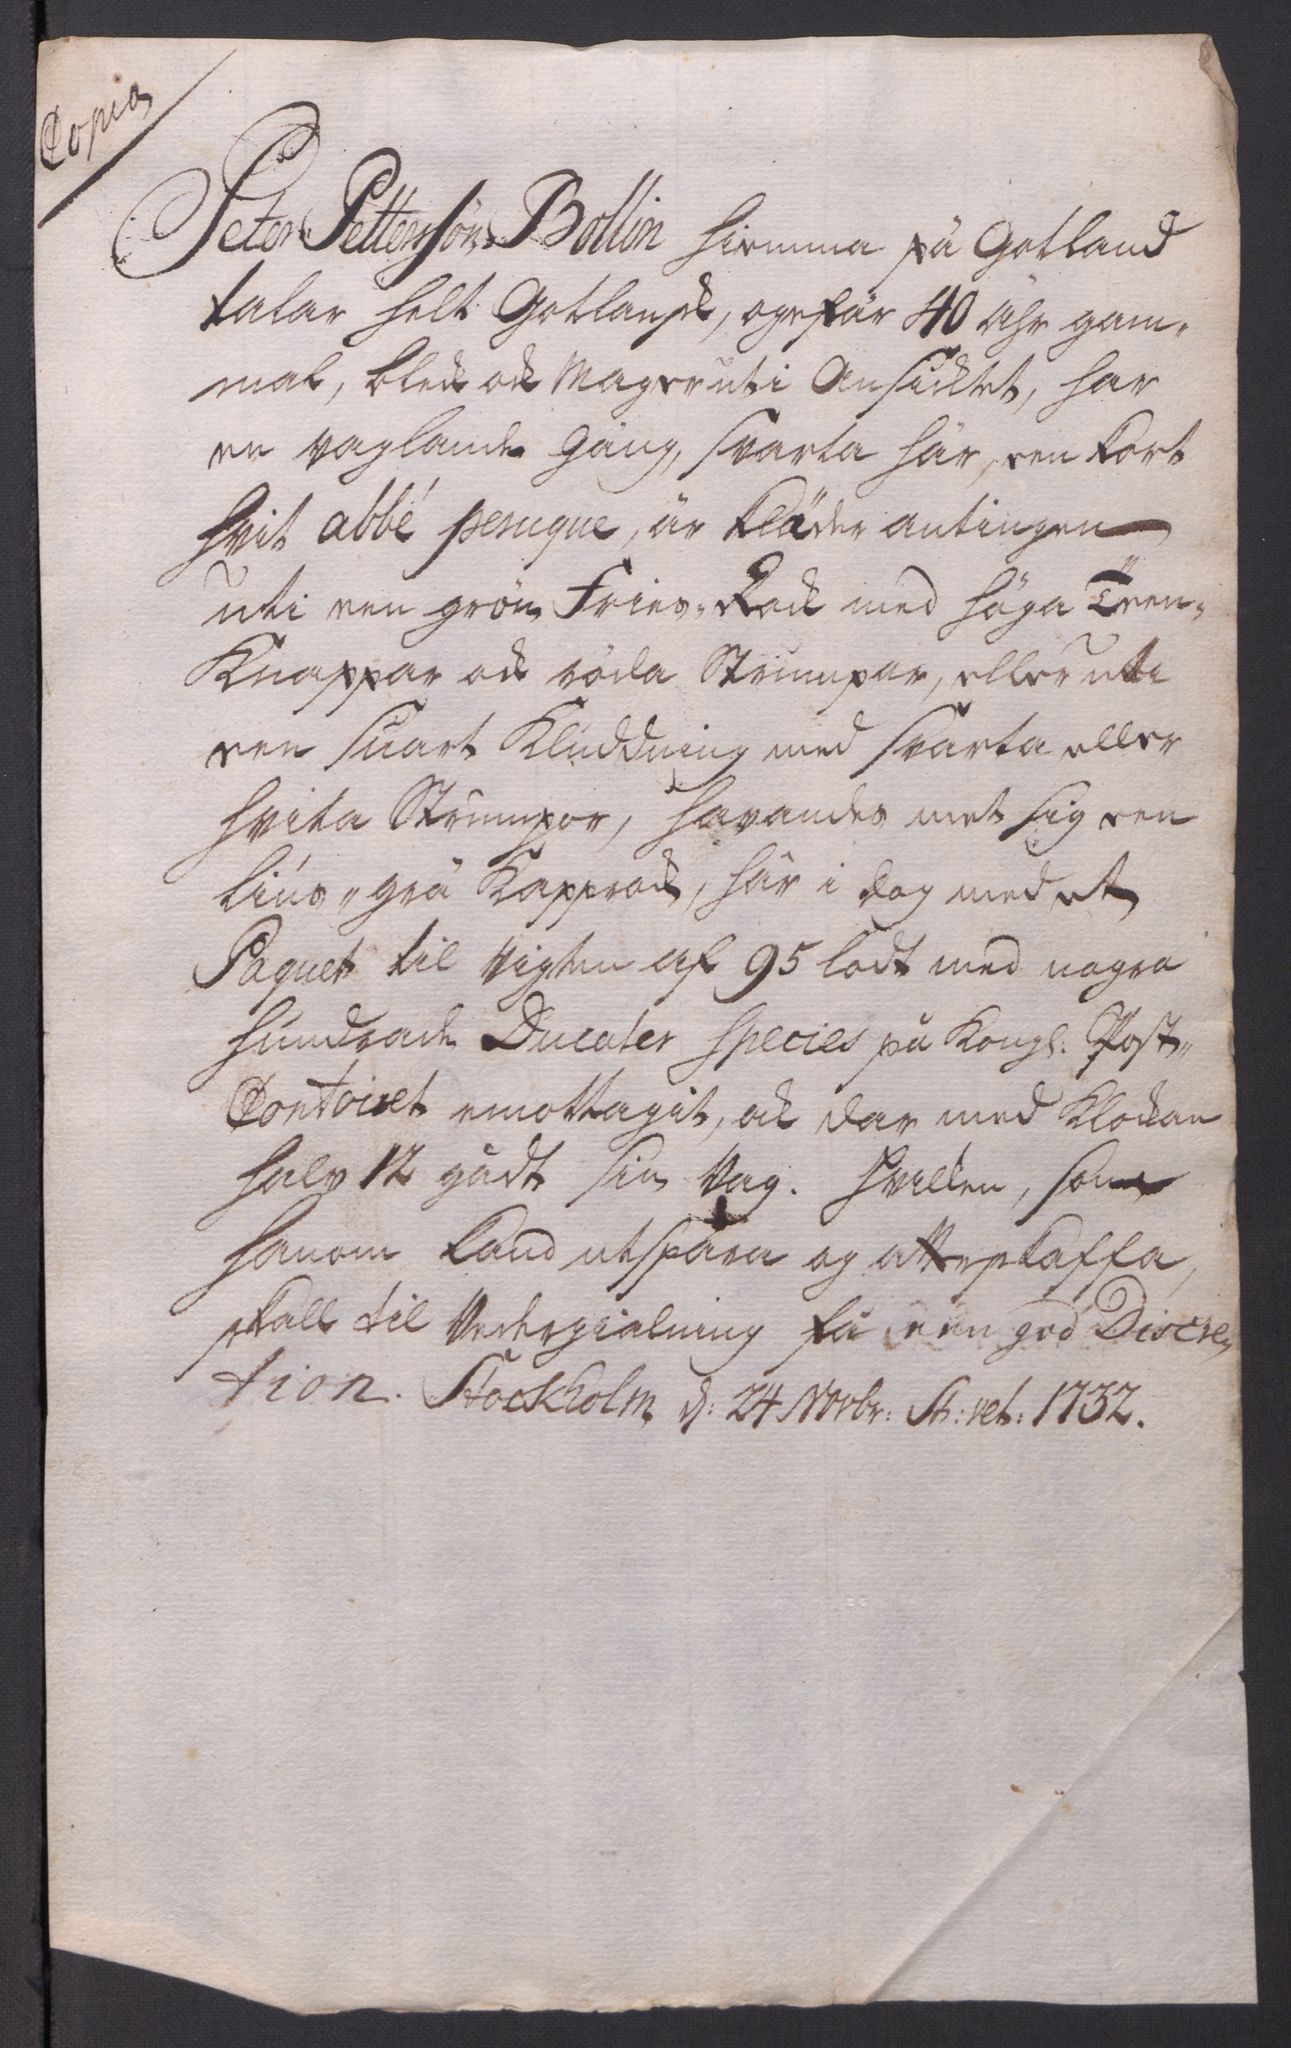 Copia
Peter Pettersson Bollin hiemma på Gotland
talar helt Gotlansk, ogefär 40 åhr gam-
mal, blek ock Mager uti Ansicktet, har
en vaglande gång, svarta hår, een kort
hvit abbé peruque, är kläder antingen
uti een grön Fries-Rock med höga Treen-
Knappar ock röda Strumpar, eller uti
een suart Kluddning med svarta eller
hvita Strumpor, havandes met sig een
lius-grå Kapprock, här i dag med et
Paquet til Vigten af 95 lodt med nogra
hundrade Ducater Species på Kongl: Post-
Contoiret emottagit, ock dar med Klockan
halv 12 gådt sin Vag. Hvilken, som
hanom kand utspåra og attrapkaffa,
skall til Vedergialning få een god Discre-
tion. Stockholm d: 24 Novbr: St: vet: 1732.